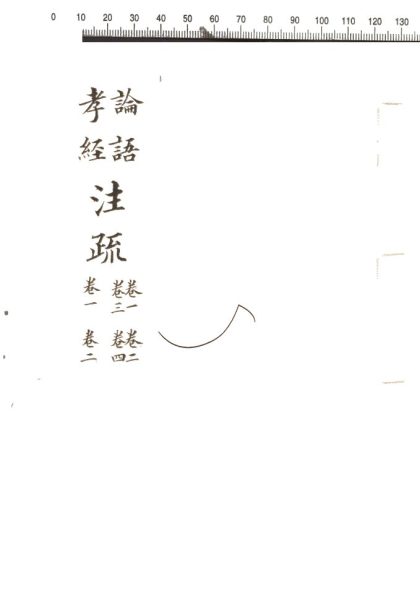 0 10 20 30 40 50 60 70 80 90 100 110 120 130
論語
孝経
注疏
卷一 卷二
卷三 卷四
卷一 卷二